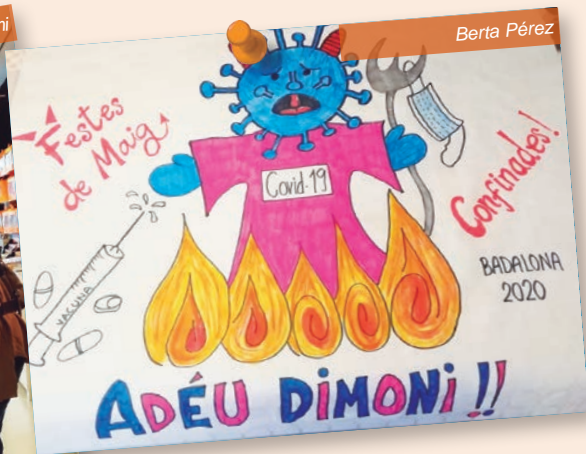 ni
Berta Pérez
Festes
de Maig
Covid-19
Confinades!
VACUNA
BADALONA
2020
ADÉU DIMONI!!